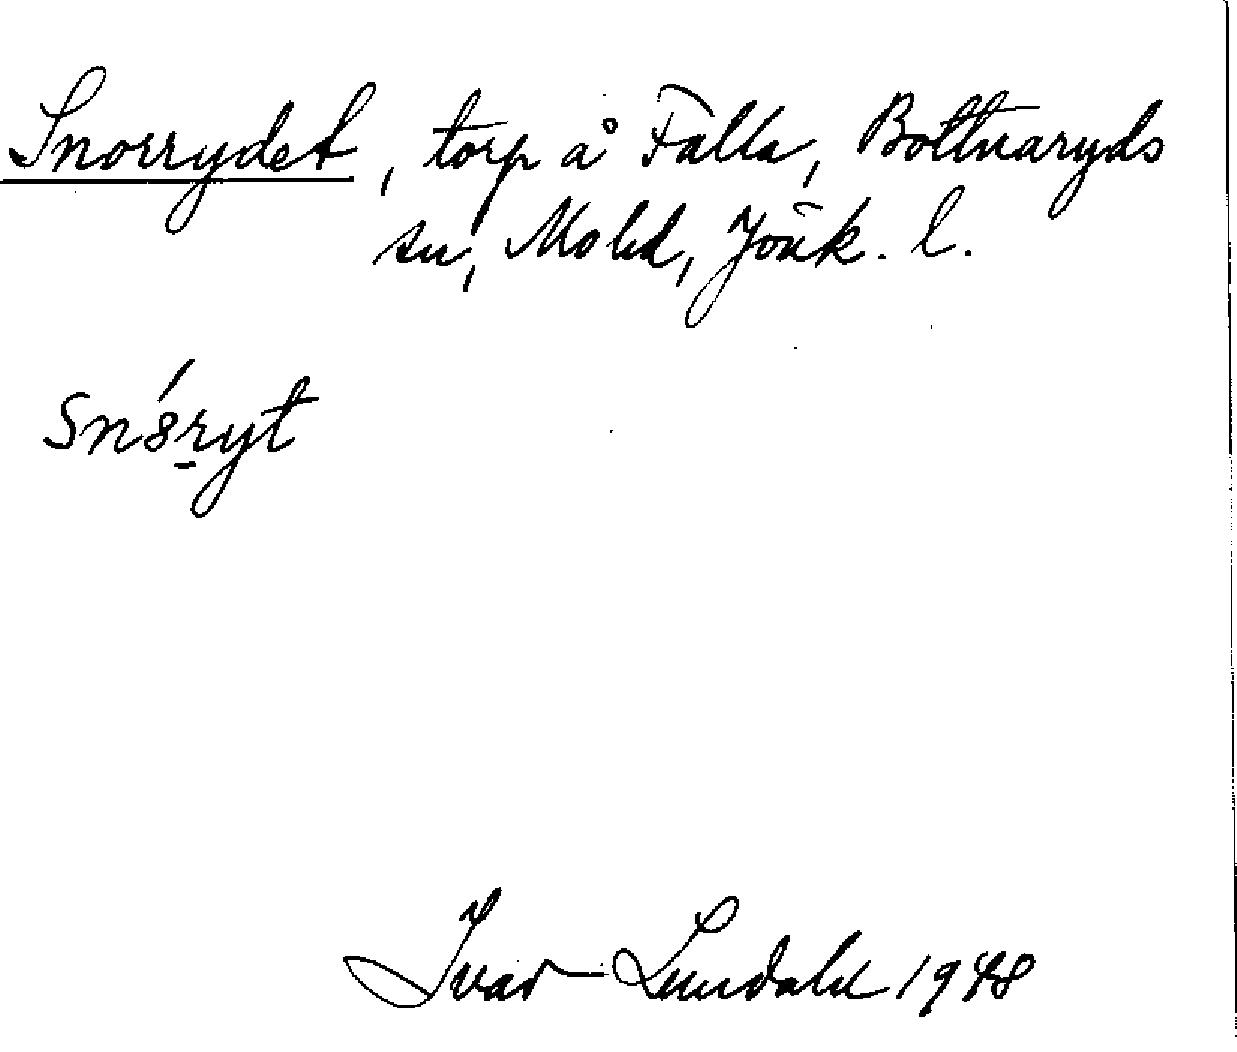 Snorrydet, torp å Falla, Bottnaryds
sn, Mo hd, Jönk. l.
Ivar Lundahl 1948